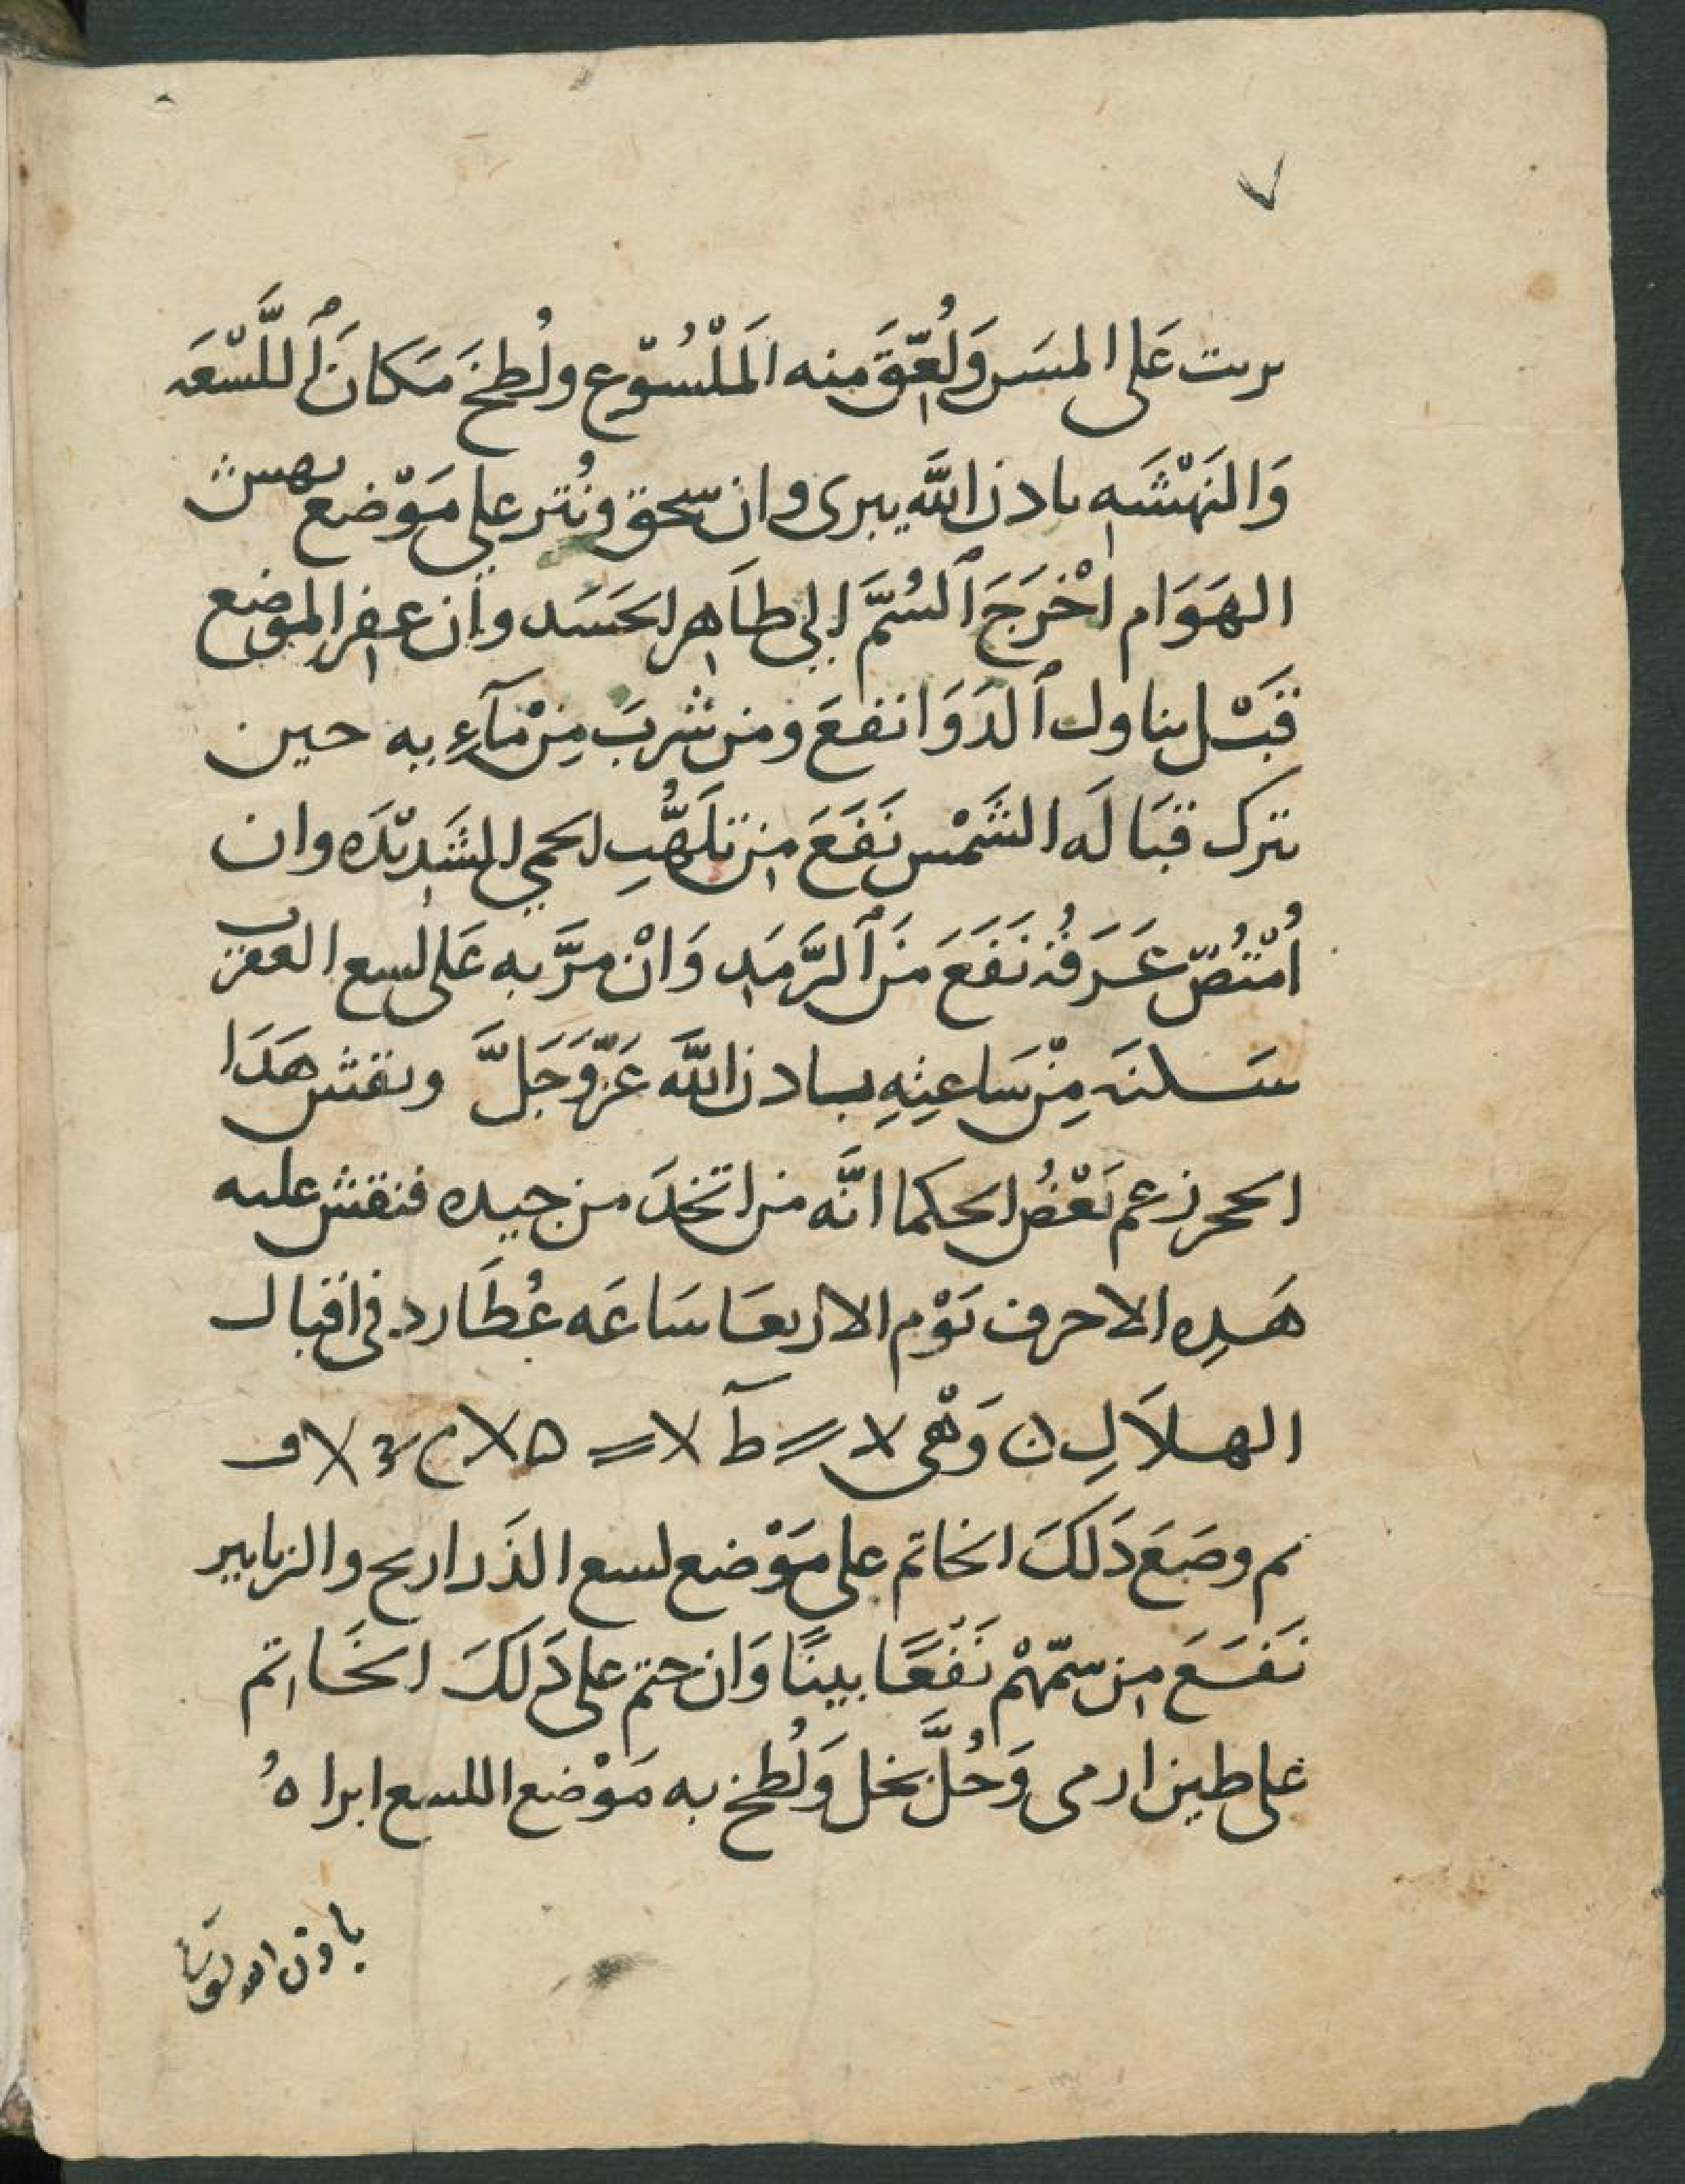 ٧
بريت على المسن وَلُعِقَ منه المَلْسُوع ولُطخَ مَكانَ اللَّسْعَه
وَالنَهْشَه بادن اللَّه يبرى وان سحق ونُثر على مَوْضع نهش
الهَوَام اخْرَجَ السُمَّ الى ظاهر الجَسَد وان عفر الموضع
قبَْل تناول الدَوَا نفعَ ومن شربَ مِنْ مآءٍ به حين
يترك قبَالَه الشَمْس نَفَعَ من تلَهُّبِ الحمى الشَديْدَه وان
امْتُصّ عَرَقُه نَفَعَ مَن الرَّمَدِ وَانْ مرَّ به عَلى لسع العقرب
سَكنَه مِنْ سَاعتِهِ بادن اللَّه عَزّوَجَلَّ ونقش هَدَا
الحجر زعم بَعْضُ الحكما انَّه من اتخدَ من جيده فنقش عليه
هَدِه الاحرف يَوْم الاربعَا سَاعَه عُطَارد في اقبال
الهلاَلِ وَهْى
ثم وضَعَ دَلكَ الخاتم على مَوْضع لسع الذَراريح والزنابير
نَفَعَ من سمّهمْ نَفْعًا بينًا وَان ختم على دَلكَ الخَاتم
على طين ارمى وَحُلَّ بخل وَلُطخ به مَوْضع اللسع ابراهُ
باذن الله تعالى